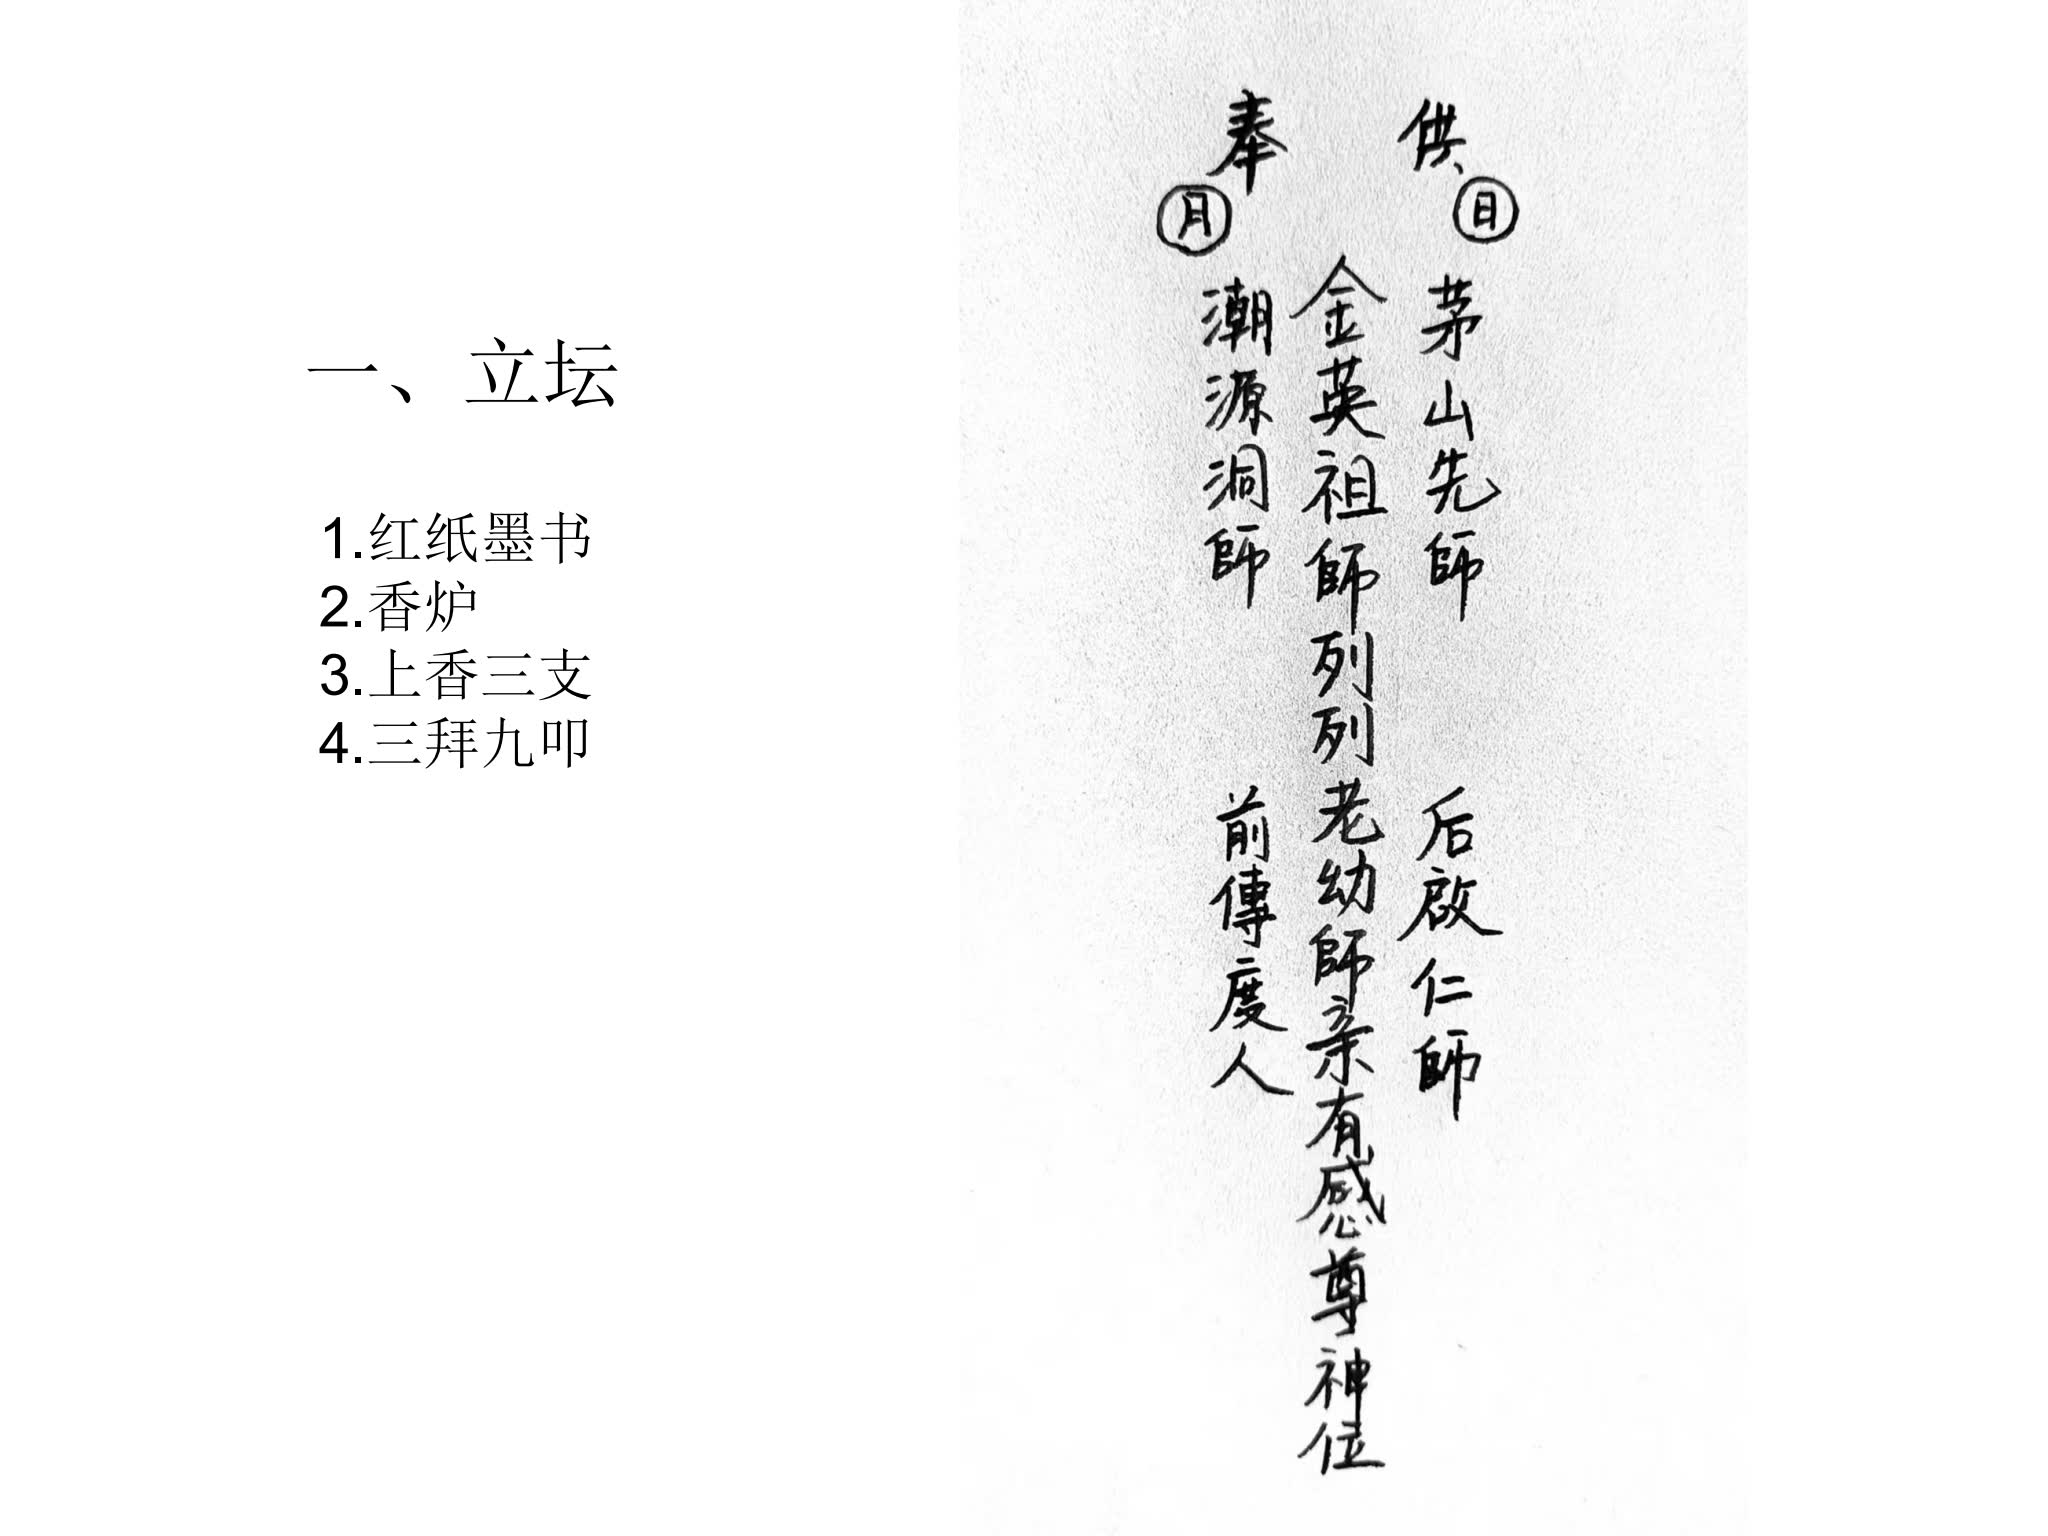 一、立坛
1.红纸墨书
2.香炉
3.上香三支
4.三拜九叩
奉 供
月 日
茅山先師 后啟仁師
金英祖師列列老幼師亲有感尊神位
潮源洞師 前傳度人